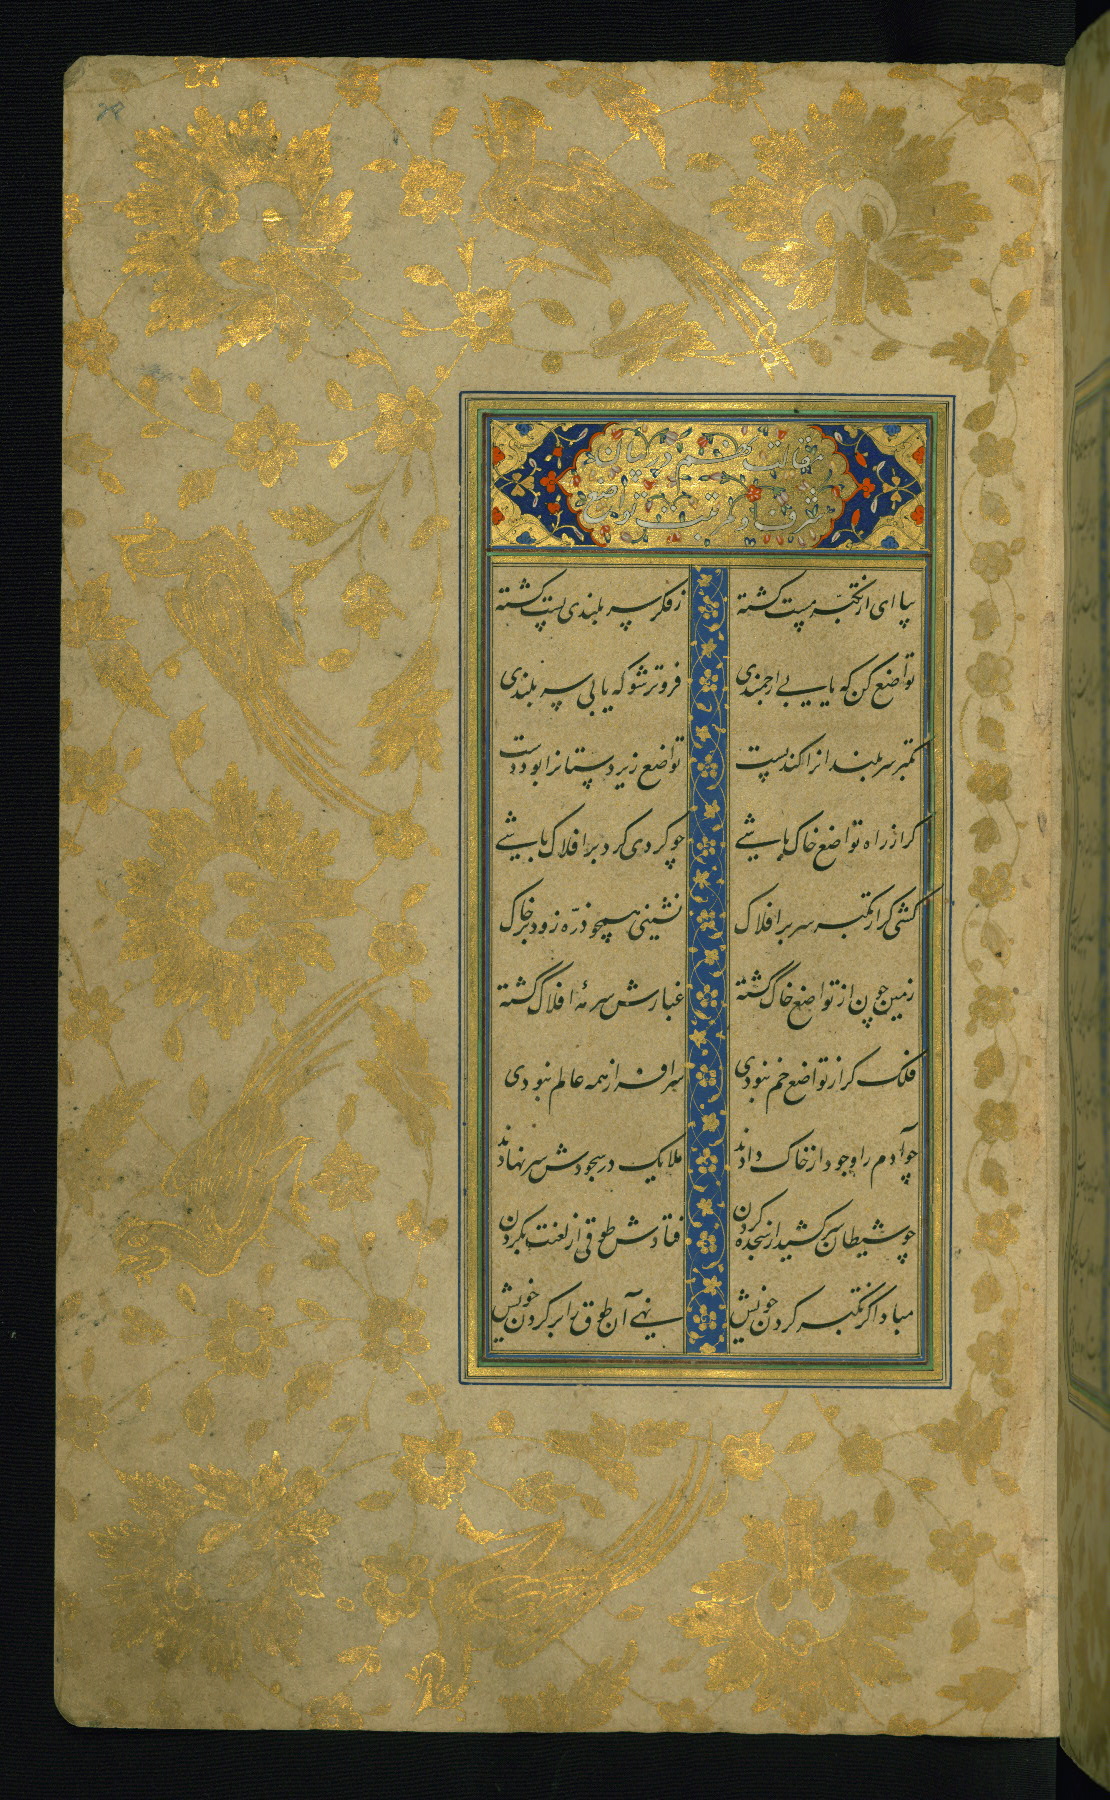 مقالت هشتم در بیان
شرف و مرتبت تواضع
بیا ای از تکبر مست گشته ز فکر سر بلندی پست گشته
تواضع کن که یابی ارجمندی فروتر شو که یابی سر بلندی
تکبر سربلندانرا کند پست تواضع زیردستانرا بود دست
گر از راه تواضع خاک باشی چو گردی گرد بر افلاک باشی
کشی گر از تکبر سر بر افلاک نشینی همچو ذره زود بر خاک
زمین چون از تواضع خاک گشته غبارش سرمهٔ افلاک گشته
فلک گر از تواضع خم نبودی سرافراز همه عالم نبودی
چو آدم را وجود از خاک دادند ملایک در سجودش سر نهادند
چو شیطان سر کشید از سجده کردن فتادش طوقی از لعنت بگردن
مبادا کز تکبر کردن خویش نهی آن طوق را بر گردن خویش